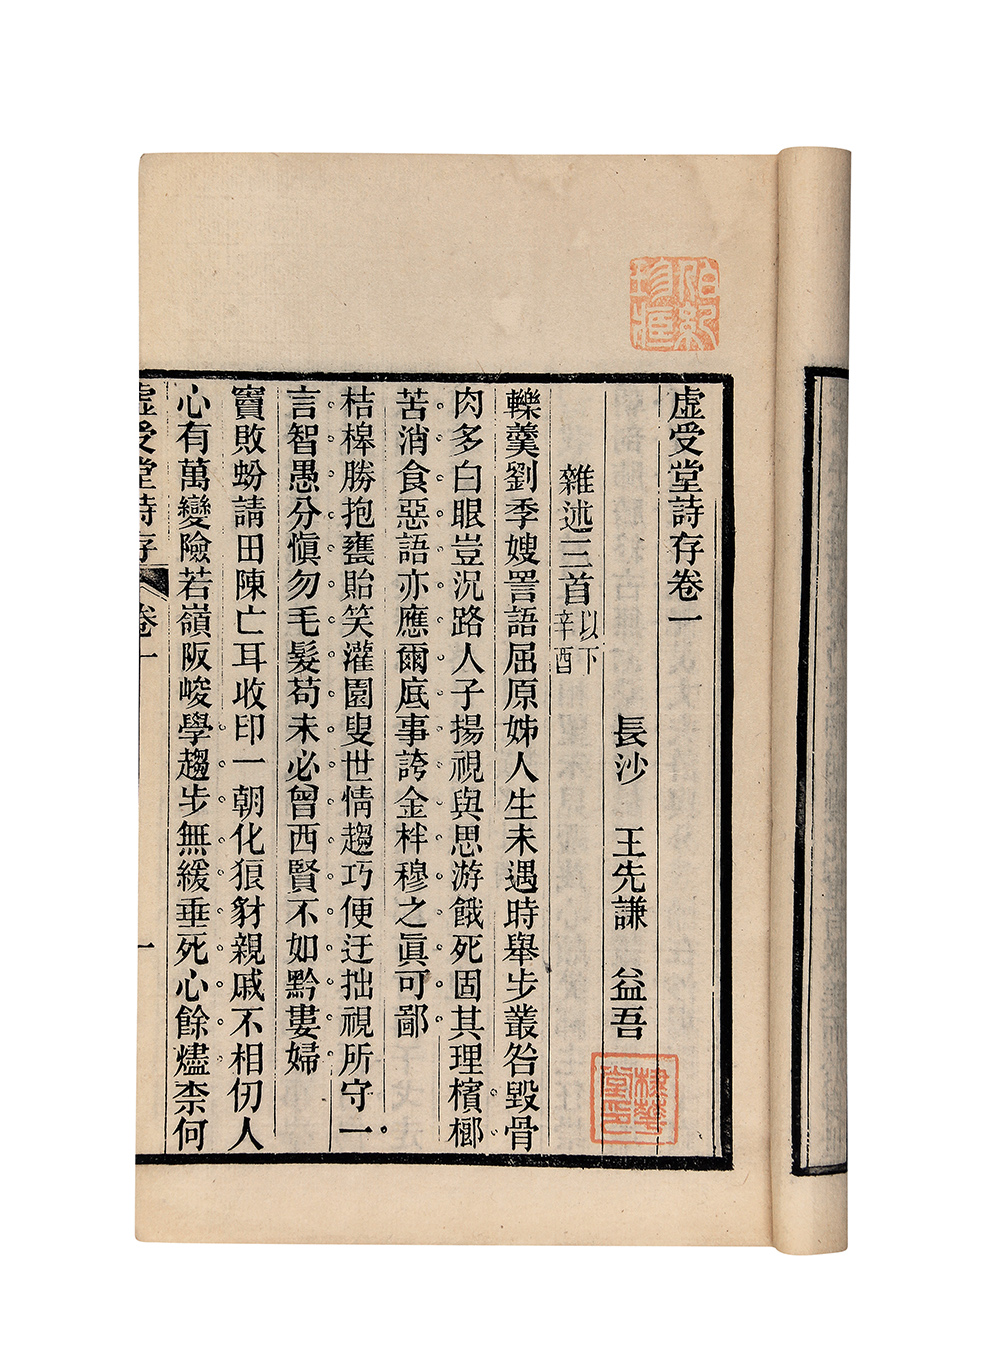 虛受堂詩存卷一
長沙 王先謙 益吾
雜述三首以下辛酉
轢羹劉季嫂詈語屈原姊人生未遇時舉步叢咎毀骨
肉多白眼豈況路人子揚視與思游餓死固其理檳榔
苦消食惡語亦應爾底事誇金柈穆之眞可鄙
桔槔勝抱甕貽笑灌園叟世情趨巧便迂拙視所守一
言智愚分愼勿毛髮苟未必曾西賢不如黔婁婦
竇敗蚡請田陳亡耳收印一朝化狼豺親戚不相仞人
心有萬變險若嶺阪峻學趨步無緩垂死心餘燼柰何
虛受堂詩存 卷一
一